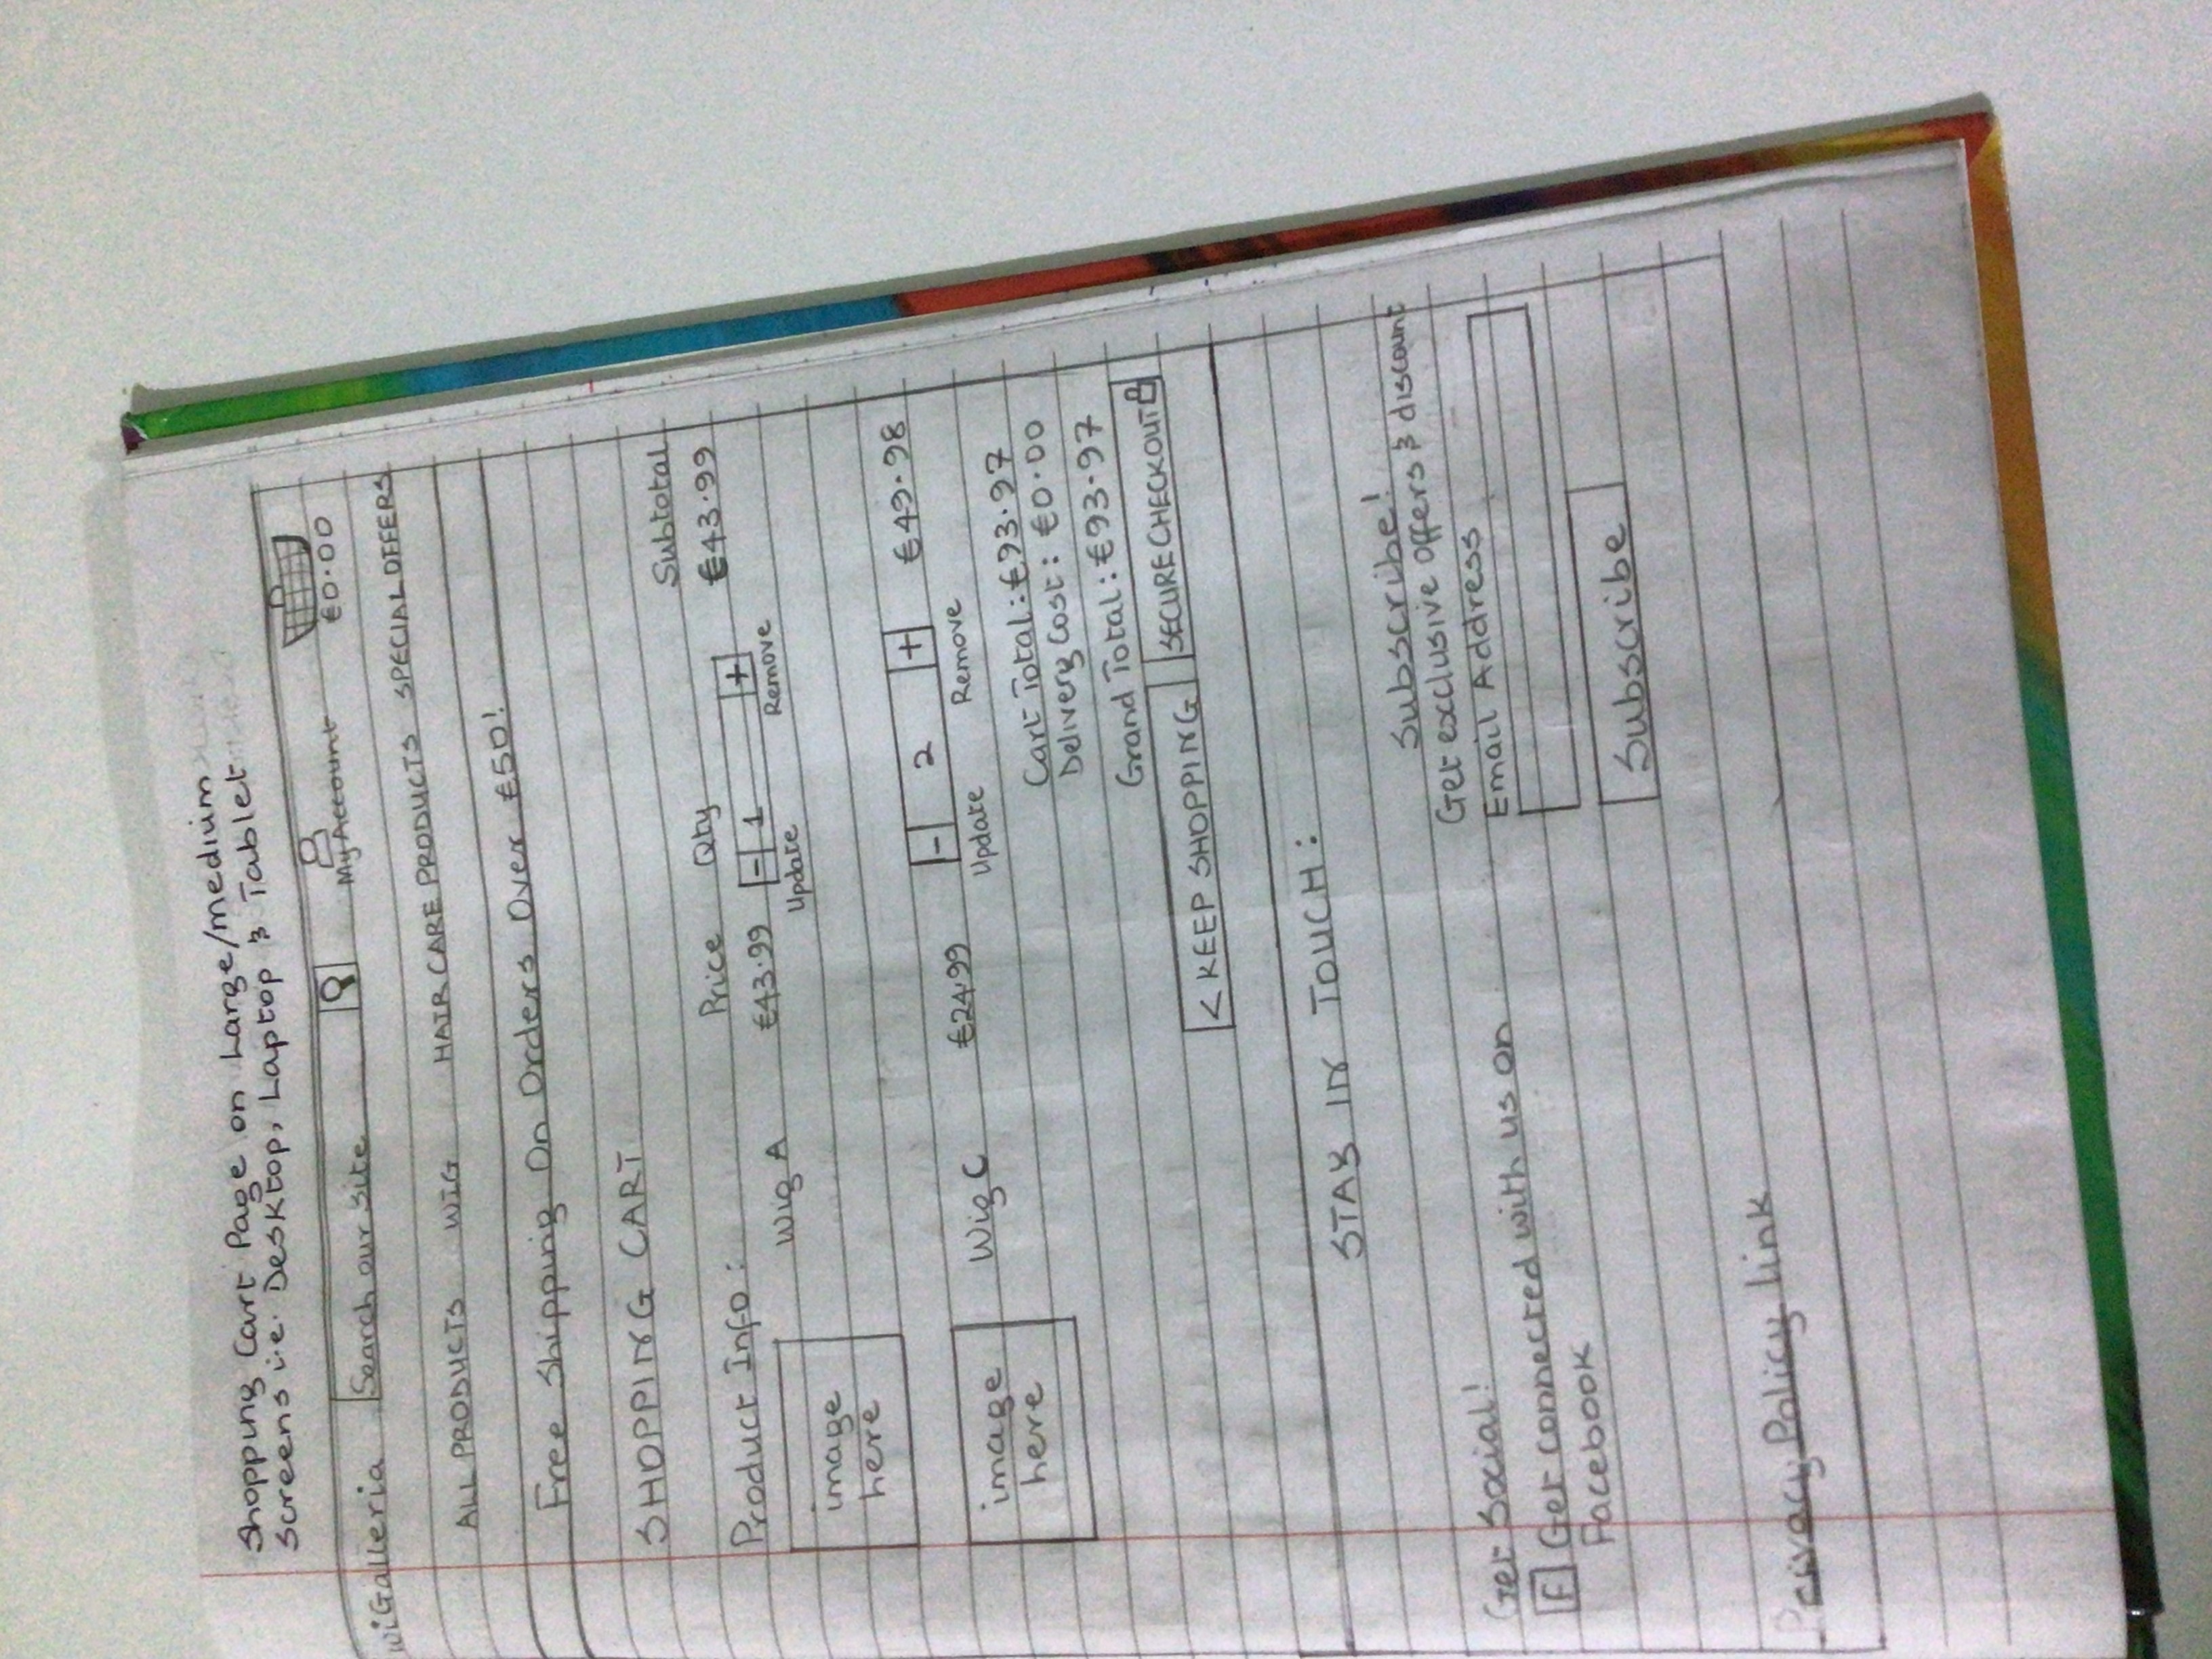 Shopping Cart Page on Large/medium
Screens i.e. Desktop, Laptop & Tablet
wiGalleria Search our site My Account €0.00
ALL PRODUCTS WIG HAIR CARE PRODUCTS SPECIAL OFFERS
Free Shipping On Orders Over €50!
SHOPPING CART
Product Info: Price Qty Subtotal
Wig A €43.99 - 1 + €43.99
Update Remove
image
here
Wig C €24.99 - 2 + €49.98
Update Remove
image
here
Cart Total: €93.97
Delivery Cost: €0.00
Grand Total: €93.97
< KEEP SHOPPING SECURE CHECKOUT
STAY IN TOUCH:
Subscribe!
Get exclusive offers & discount
Email Address
Subscribe
Get Social!
F Get connected with us on
Facebook
Privacy Policy link